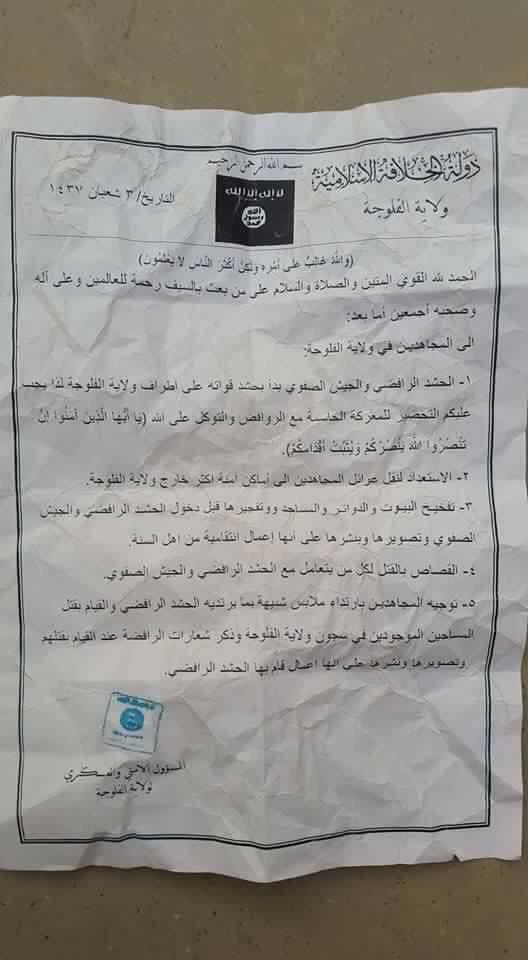 بسم الله الرحمن الرحيم
دولة الخلافة الاسلامية
ولاية الفلوجة
التاريخ/ ٣ شعبان ١٤٣٧
لا إله إلا الله
الله
رسول
محمد
(والله غالب على أمره ولكن أكثر الناس لا يعلمون)
الحمد لله القوي المتين والصلاة والسلام على من بعث بالسيف رحمة للعالمين وعلى آله
وصحبه أجمعين أما بعد:
الى المجاهدين في ولاية الفلوجة:
١- الحشد الرافضي والجيش الصفوي بدأ بحشد قواته على اطراف ولاية الفلوجة لذا يجب
عليكم التحضير للمعركة الحاسمة مع الروافض والتوكل على الله (يا أيُّها الَّذينَ آمَنُوا إنْ
تَنْصُرُوا اللَّهَ يَنْصُرْكُمْ وَيُثَبِّتْ أَقْدَامَكُمْ).
٢- الاستعداد لنقل عوائل المجاهدين الى أماكن امنة اكثر خارج ولاية الفلوجة.
٣- تفخيخ البيوت والدوائر والمساجد ووتفجيرها قبل دخول الحشد الرافضي والجيش
الصفوي وتصويرها وبنشرها على أنها إعمال انتقامية من اهل السنة.
٤- القصاص بالقتل لكل من يتعامل مع الحشد الرافضي والجيش الصفوي.
٥- توجيه المجاهدين بارتداء ملابس شبيهة بما يرتديه الحشد الرافضي والقيام بقتل
المساجين الموجودين في سجون ولاية الفلوجة وذكر شعارات الرافضة عند القيام بقتلهم
وتصويرها ونشرها على انها اعمال قام بها الحشد الرافضي.
المسؤول الامني والعسكري
لولاية الفلوجة